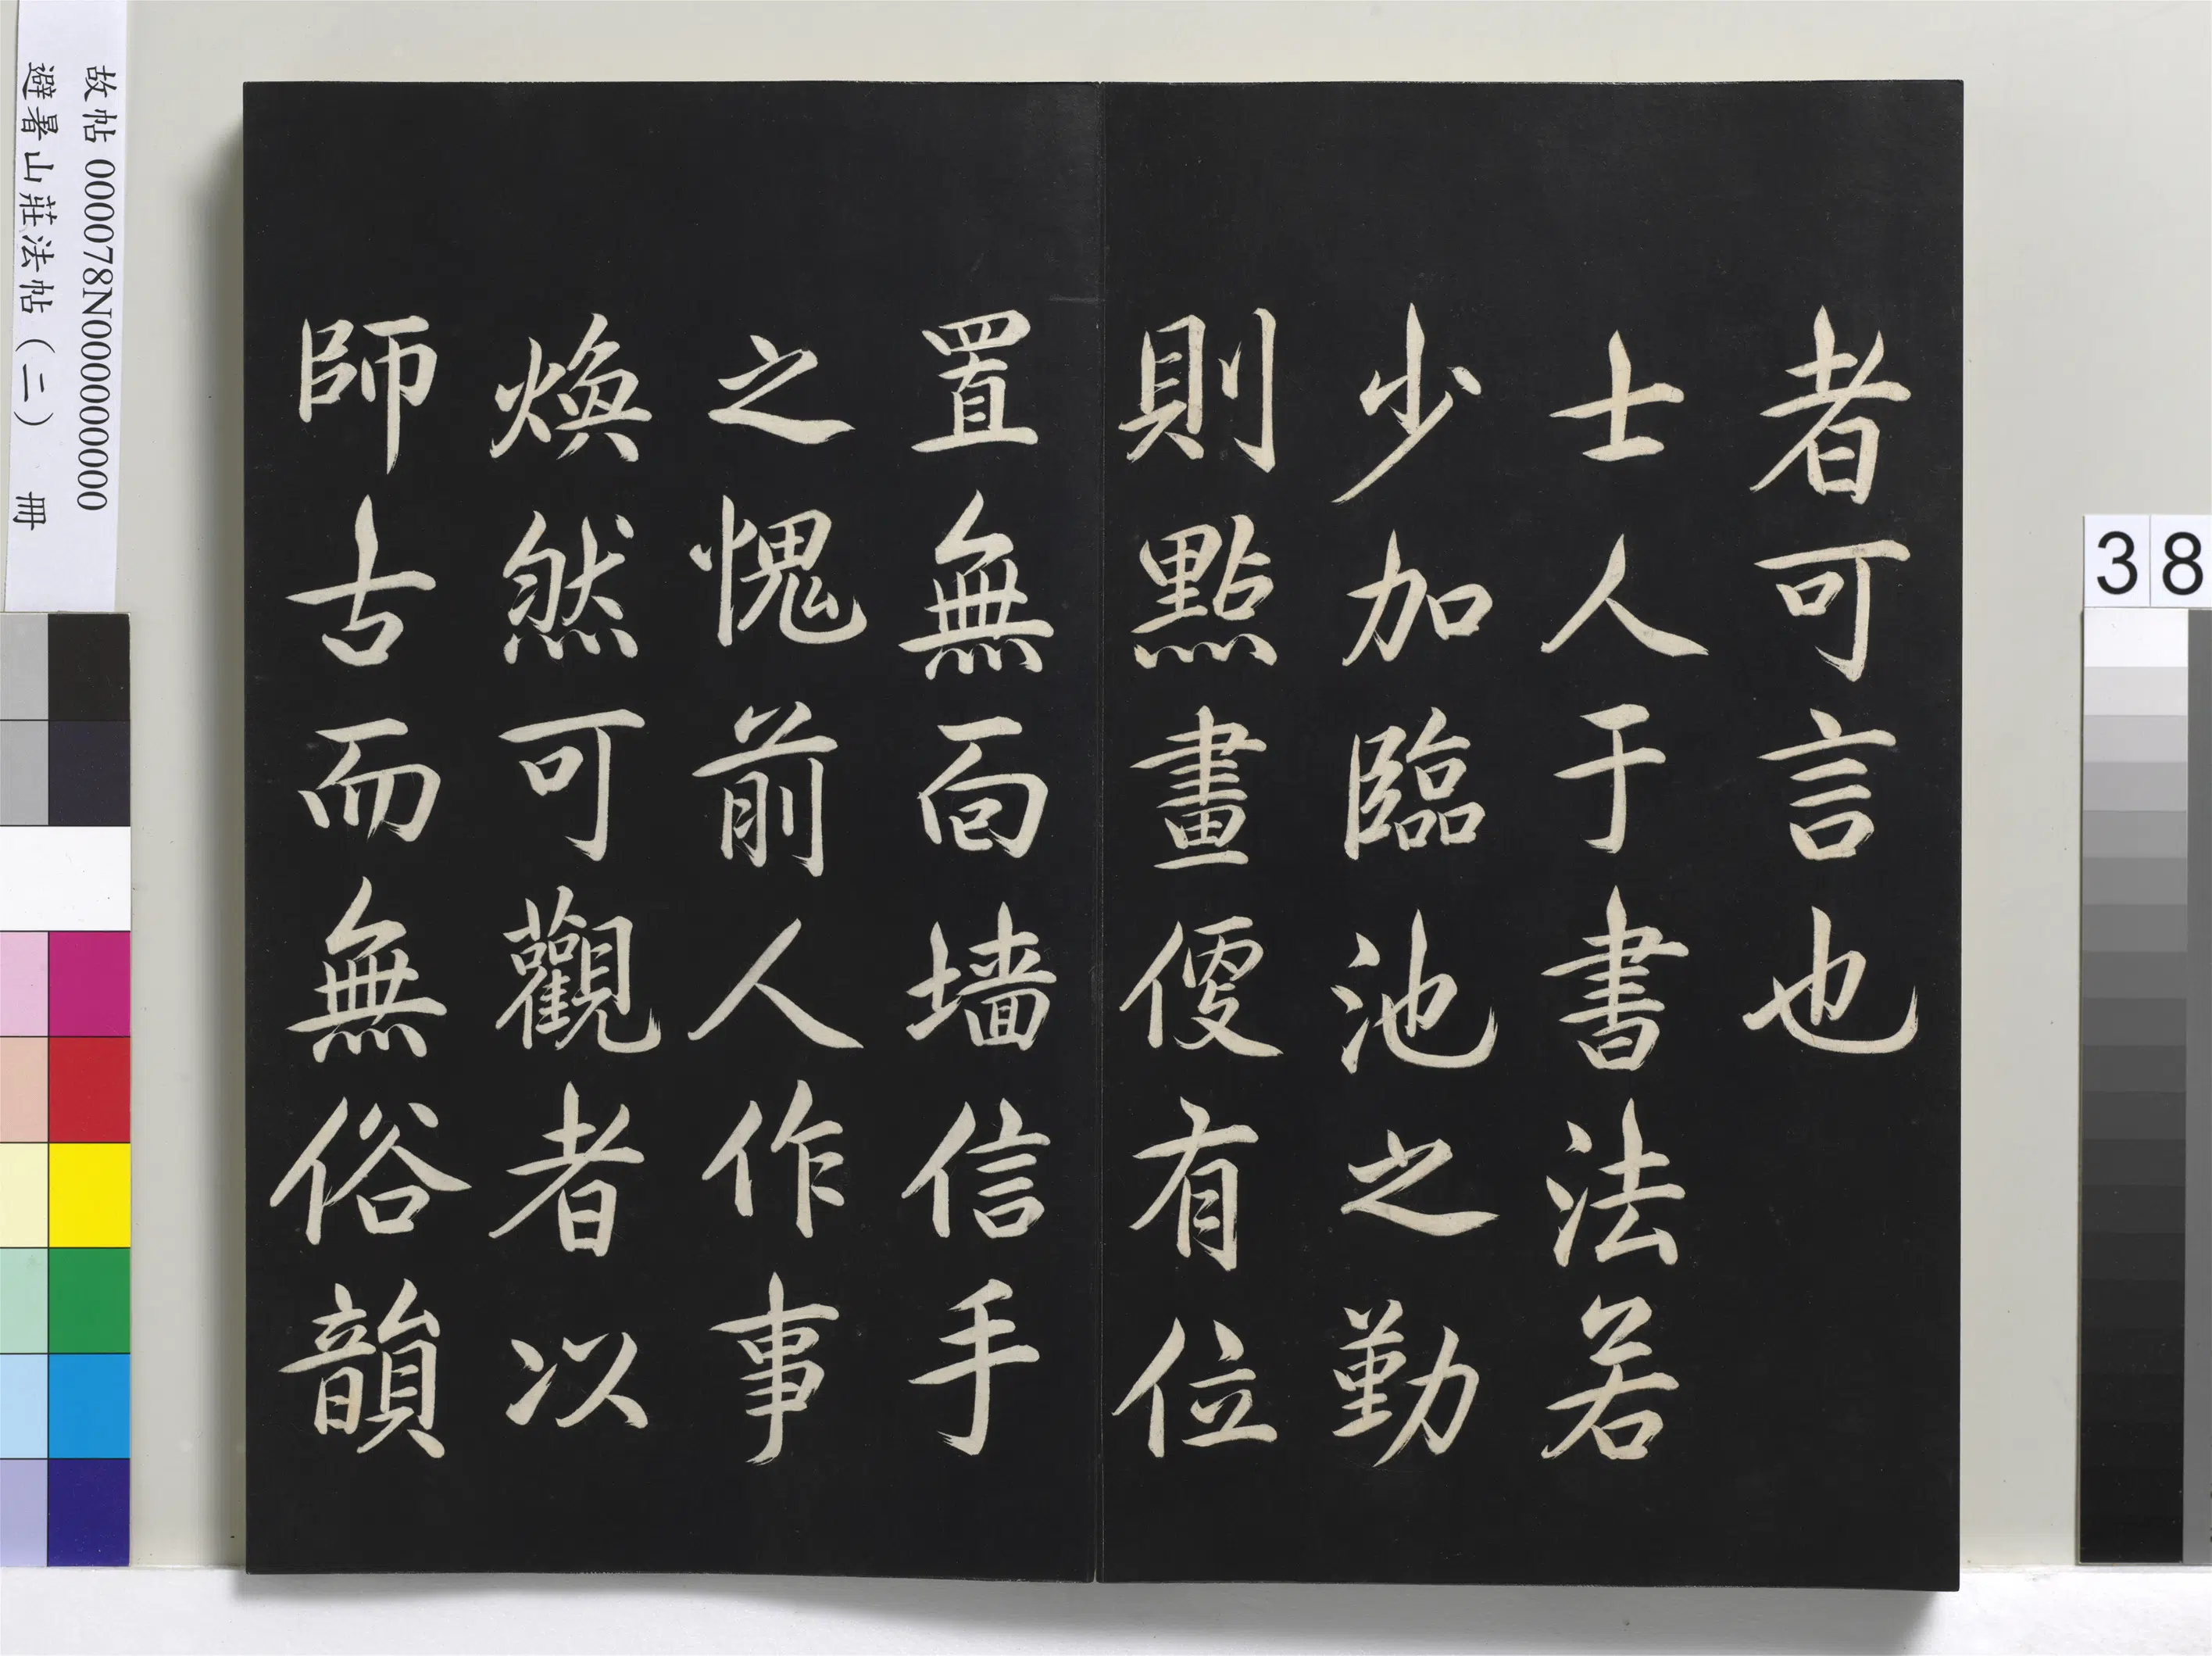 者可言也
士人于書法若
少加臨池之勤
則點畫便有位
置無面墻信手
之愧前人作事
煥然可觀者以
師古而無俗韻
故帖 000078N000000000
避暑山莊法帖(二) 冊
38